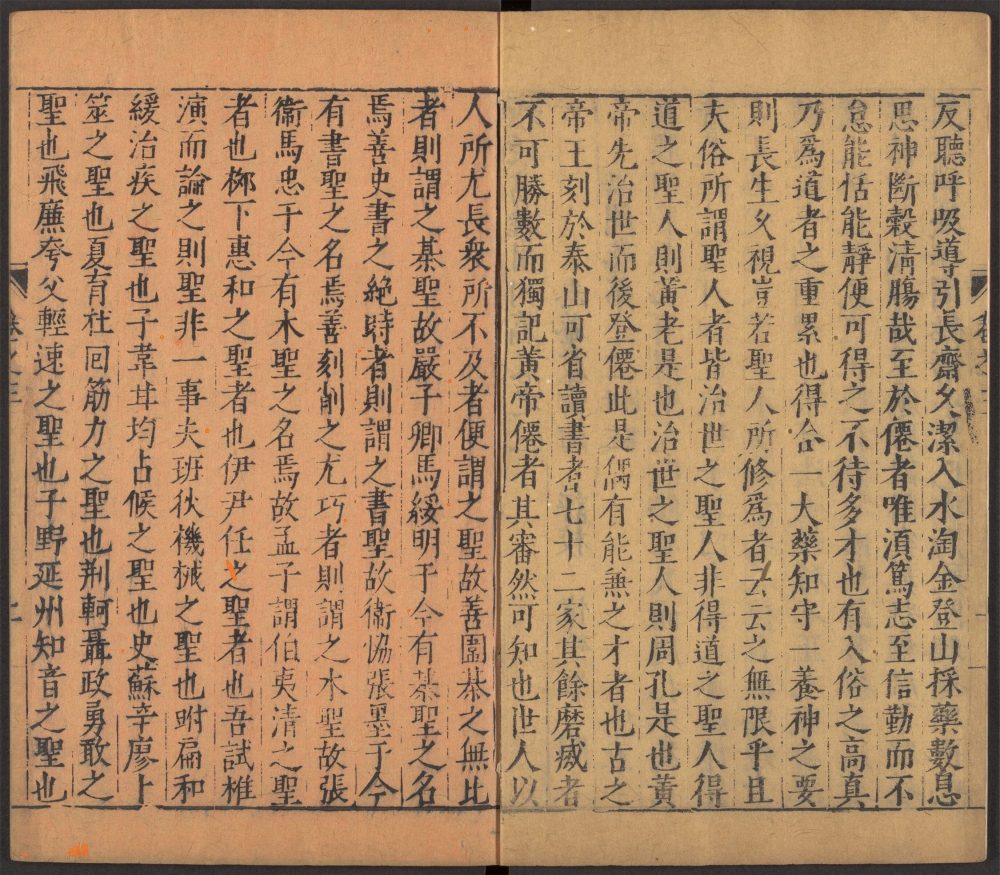 反聽呼吸導引長齋久潔入水淘金登山採藥數息
思神斷穀清腸哉至於僊者唯湏篤志至信勤而不
怠能恬能靜便可得之不待多才也有入俗之高真
乃爲道者之重累也得合一大藥知守一養神之要
則長生久視豈若聖人所修爲者云云之無限乎且
夫俗所謂聖人者皆治世之聖人非得道之聖人得
道之聖人則黃老是也治世之聖人則周孔是也黃
帝先治世而後登僊此是偶有能兼之才者也古之
帝王刻於泰山可省讀書者七十二家其餘磨滅者
不可勝數而獨記黃帝僊者其審然可知也世人以
人所尤長衆所不及者便謂之聖故善圍棊之無比
者則謂之棊聖故嚴子卿馬綏明于今有棊聖之名
焉善史書之絶時者則謂之書聖故衞協張墨于今
有書聖之名焉善刻削之尤巧者則謂之木聖故張
衞馬忠于今有木聖之名焉故孟子謂伯夷清之聖
者也栁下惠和之聖者也伊尹任之聖者也吾試椎
演而論之則聖非一事夫班狄機械之聖也跗扁和
緩治疾之聖也子韋甘均占候之聖也史蘇辛廖卜
筮之聖也夏育杜回筋力之聖也荆軻聶政勇敢之
聖也飛廉夸父輕速之聖也子野延州知音之聖也
卷之三